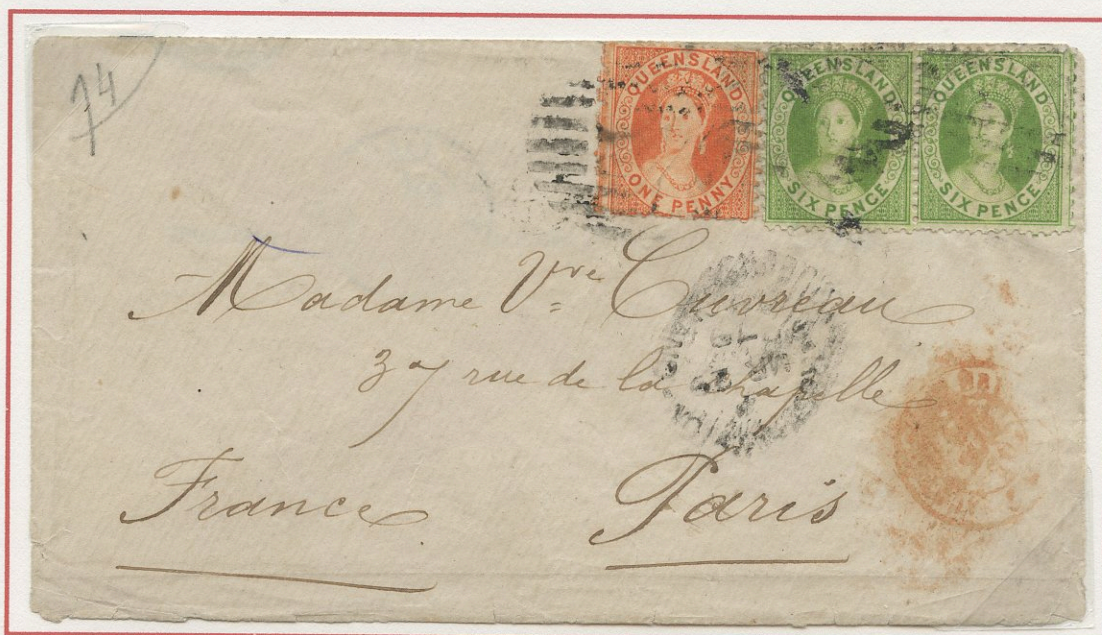 74
QUEENSLAND
ONE PENNY
QUEENSLAND
SIX PENCE
QUEENSLAND
SIX PENCE
Madame Vve Cuvreau
37 rue de la Chapelle
France Paris